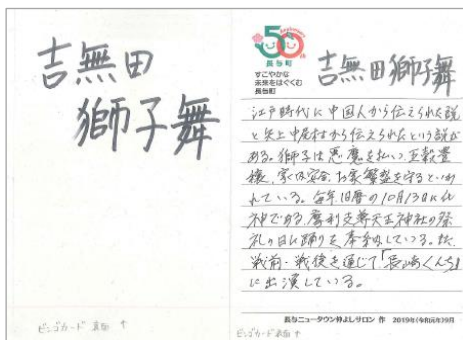 吉無田
獅子舞
ビンゴカード 表面 ↑
50
長与町
すこやかな
未来をはぐくむ
長与町
吉無田獅子舞
江戸時代に中国人から伝えられた説
と矢上中尾村から伝えられたという説が
ある。獅子は悪魔を払い、五穀豊
穣、家内安全、お家繁盛を守るといわ
れている。毎年、旧暦の10月13日に氏
神である、摩利支尊天王神社の祭
礼の日に踊りを奉納している。
戦前・戦後を通じて「長崎くんち」
に出演している。
長与ニュータウン仲よしサロン 作 2019年(令和元年)9月
ビンゴカード 裏面 ↑